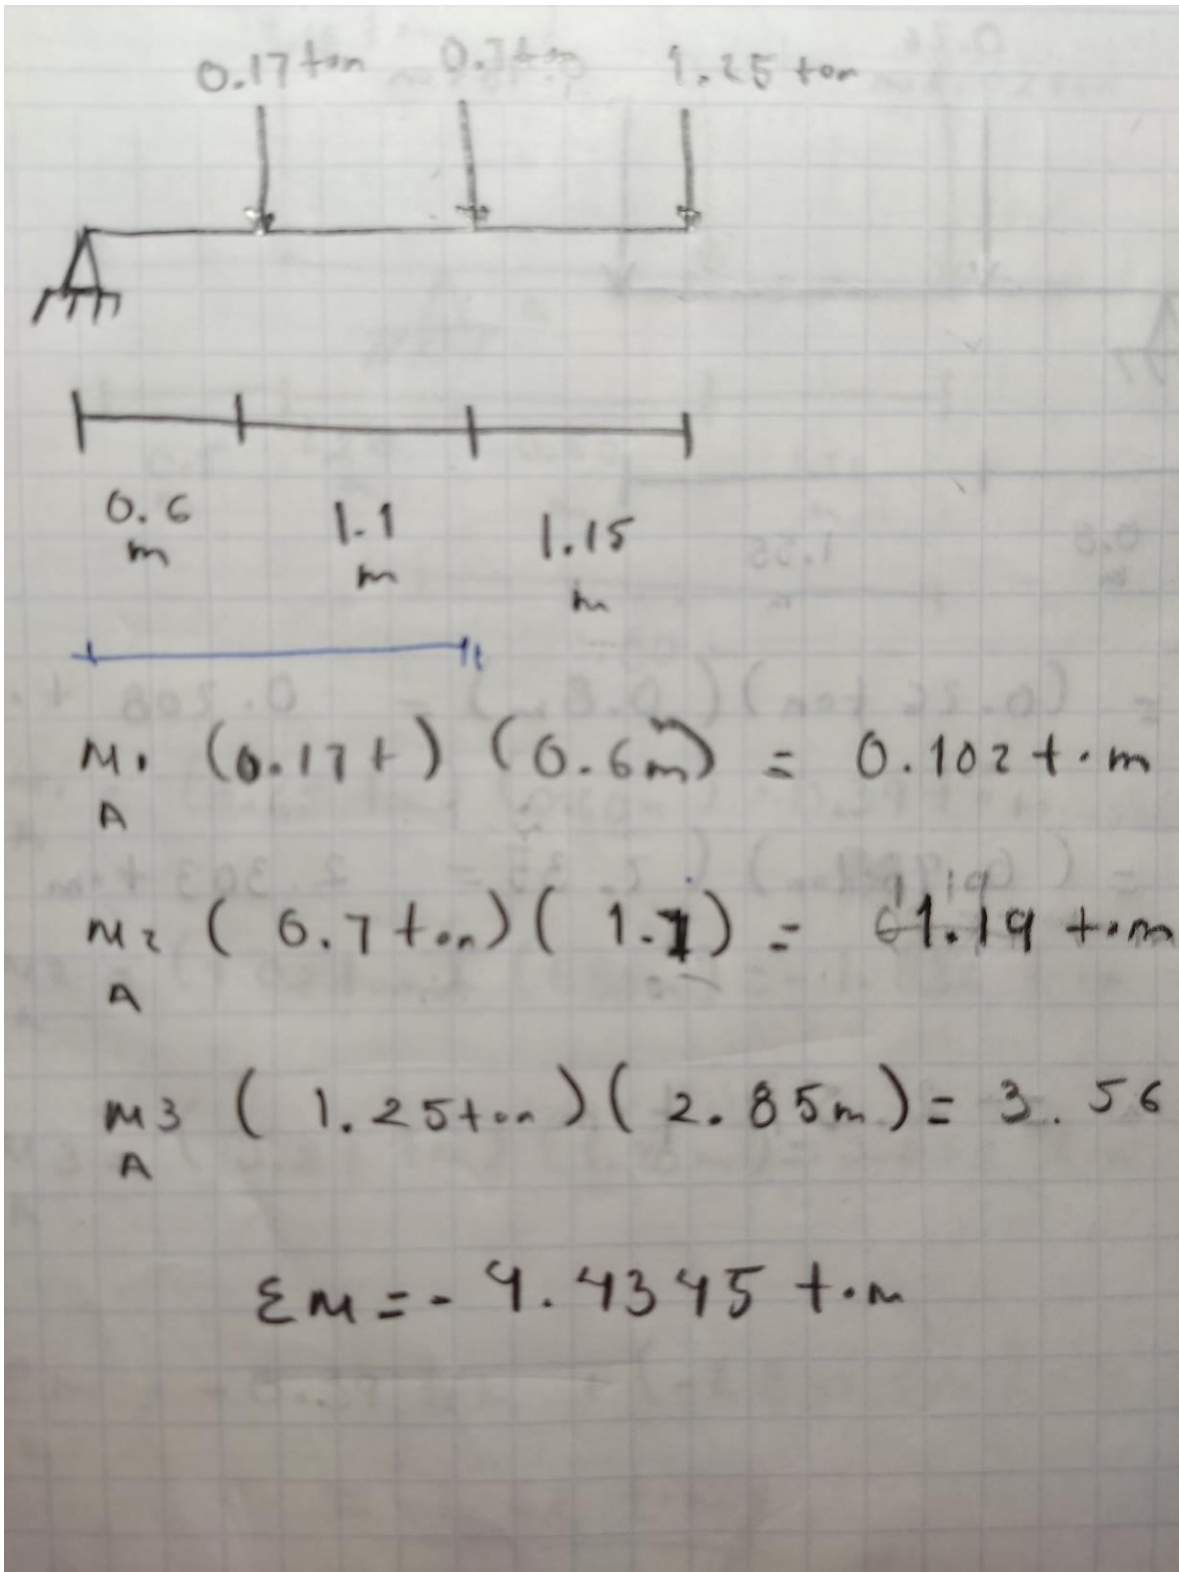 0.17 ton 0.7 ton 1.25 ton
0.6 1.1 1.15
m m m
M1 (0.17t) (0.6m) = 0.102 t·m
A
M2 (0.7 ton) (1.7) = 1.19 t·m
A
M3 (1.25 ton) (2.85m) = 3.56
A
ΣM = - 4.4345 t·m